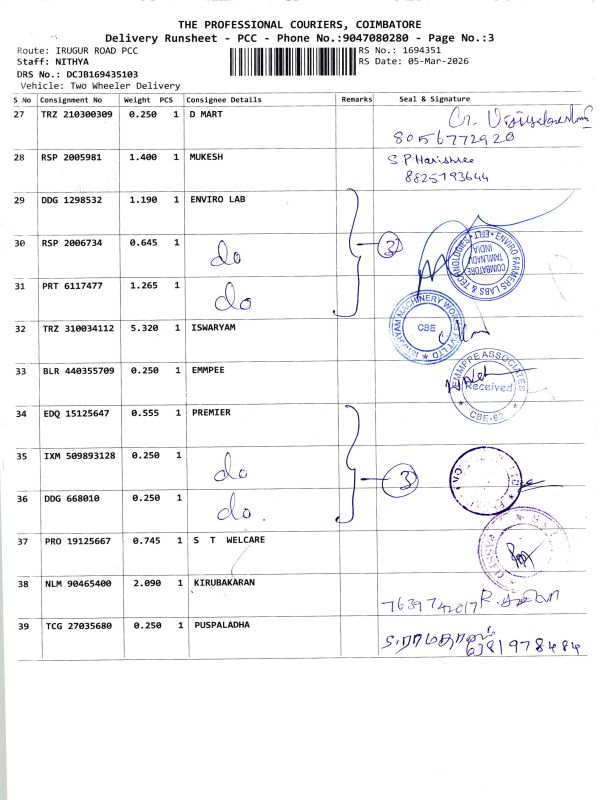 THE PROFESSIONAL COURIERS, COIMBATORE
Delivery Runsheet - PCC - Phone No.:9047080280 - Page No.:3
Route: IRUGUR ROAD PCC RS No.: 1694351
Staff: NITHYA RS Date: 05-Mar-2026
DRS No.: DCJB169435103
Vehicle: Two Wheeler Delivery
S No Consignment No Weight PCS Consignee Details Remarks Seal & Signature
27 TRZ 210300309 0.250 1 D MART
8056772920
28 RSP 2005981 1.400 1 MUKESH S.P Harishree
8825193644
29 DDG 1298532 1.190 1 ENVIRO LAB
30 RSP 2006734 0.645 1 do 3
ENVIRO FARMERS LABS & TECHNOLOGIES
COIMBATORE
TAMILNADU
INDIA
31 PRT 6117477 1.265 1 do
32 TRZ 310034112 5.320 1 ISWARYAM
ISWARYAM MACHINERY WORKS PVT LTD
CBE
33 BLR 440355709 0.250 1 EMMPEE
EMMPEE ASSOCIATES
Received
CBE-62
34 EDQ 15125647 0.555 1 PREMIER
35 IXM 509893128 0.250 1 do 3
36 DDG 668010 0.250 1 do.
37 PRO 19125667 0.745 1 S T WELCARE
38 NLM 90465400 2.090 1 KIRUBAKARAN
7639742017
39 TCG 27035680 0.250 1 PUSPALADHA
6381978484